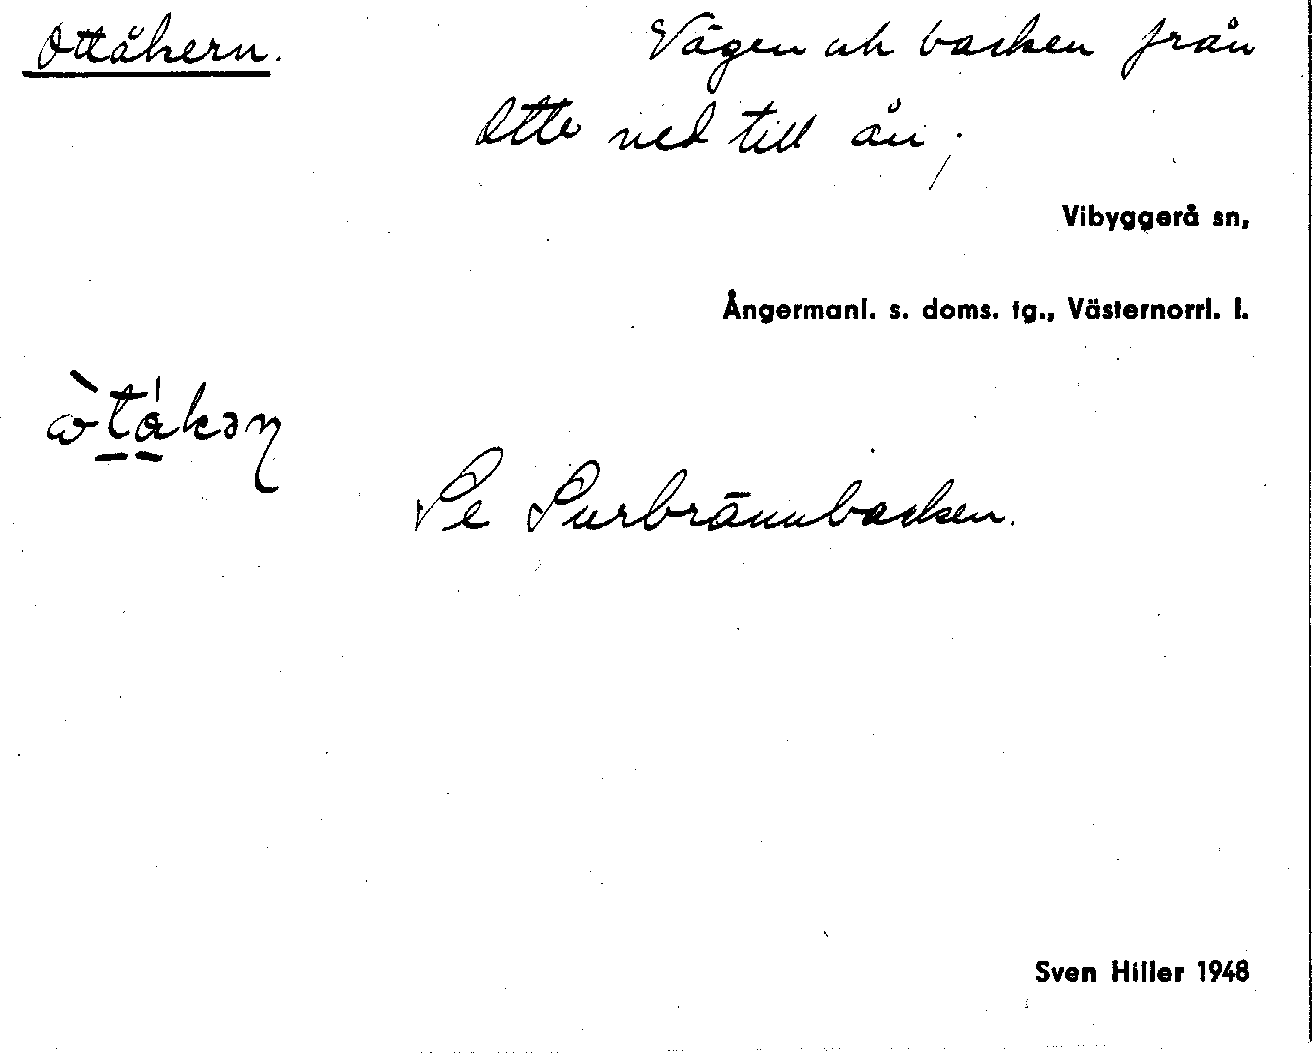 Ottåkern.
Vägen och backen från
Otte ned till ån;
Vibyggerå sn,
Ångermanl. s. doms. tg., Västernorrl. l.
Se Surbrännbacken.
Sven Hiller 1948